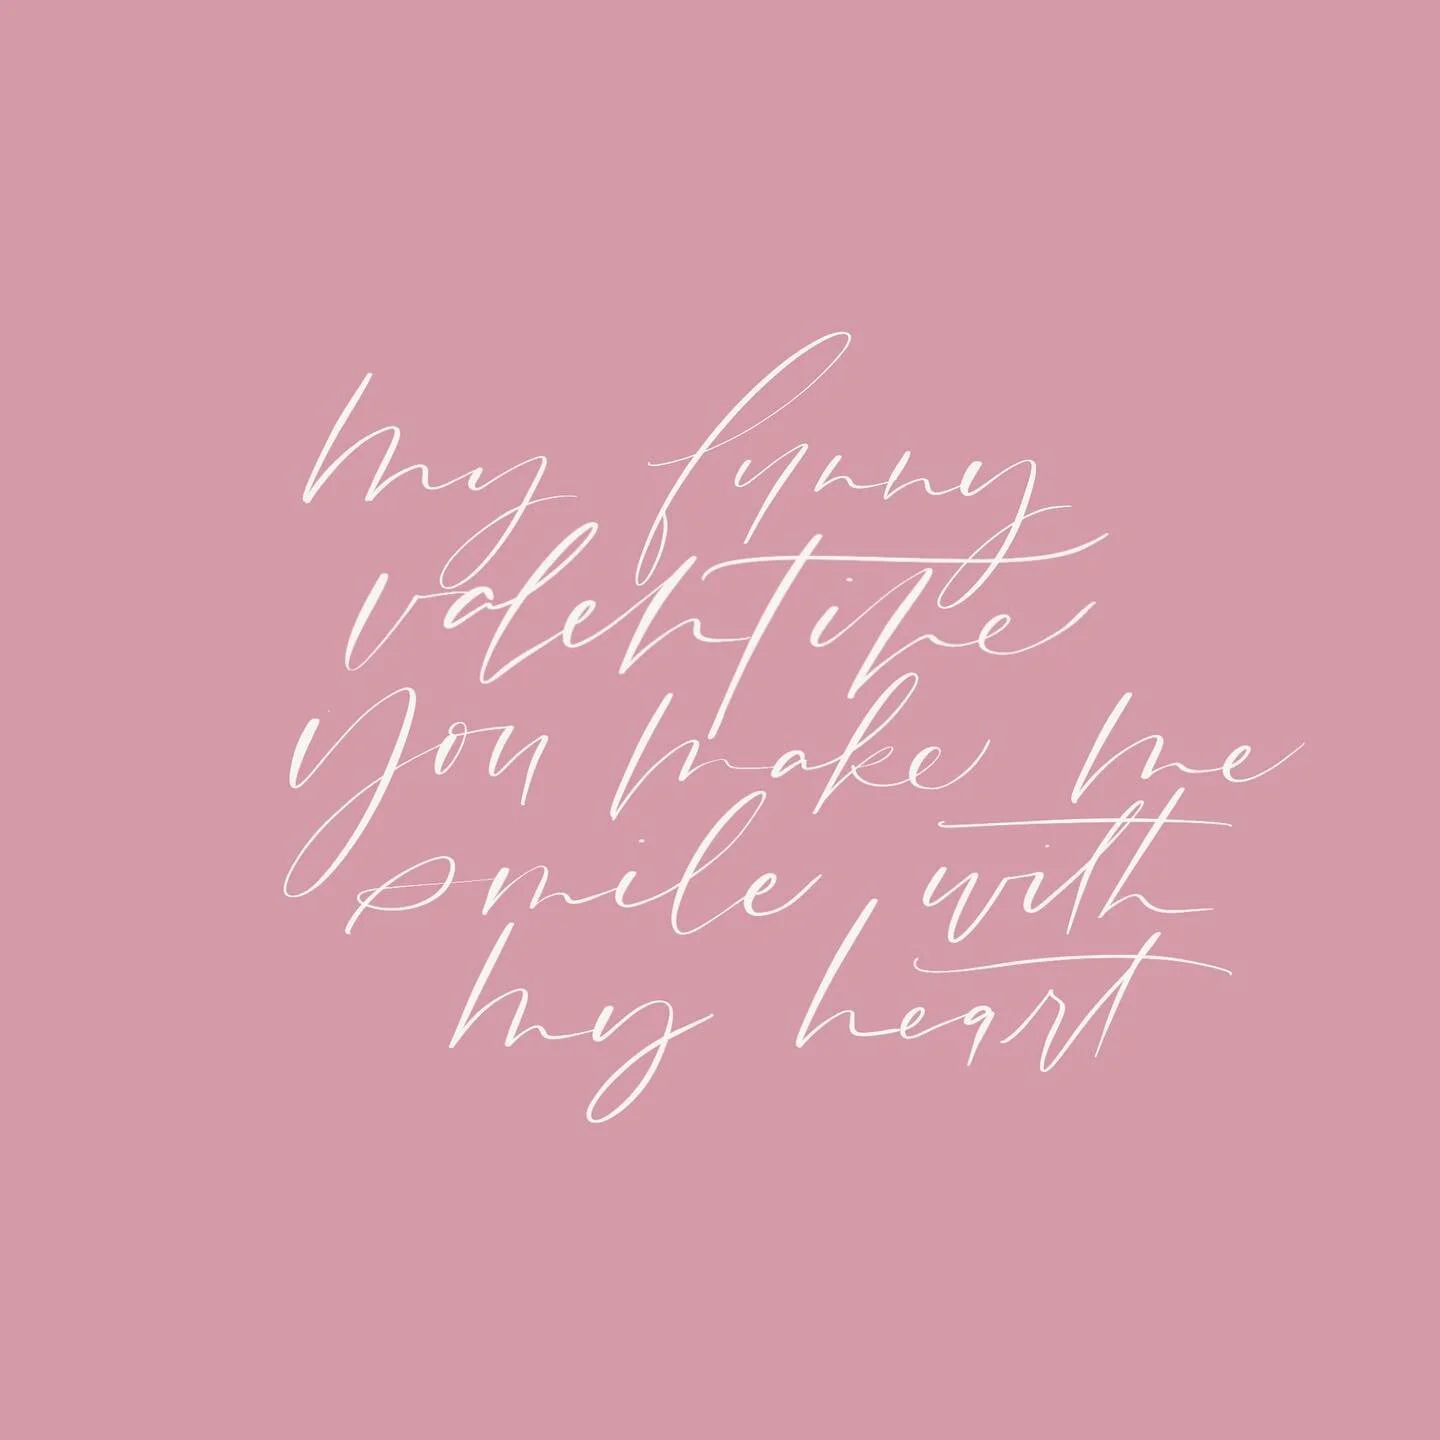 my funny
valentine
you make me
smile with
my heart